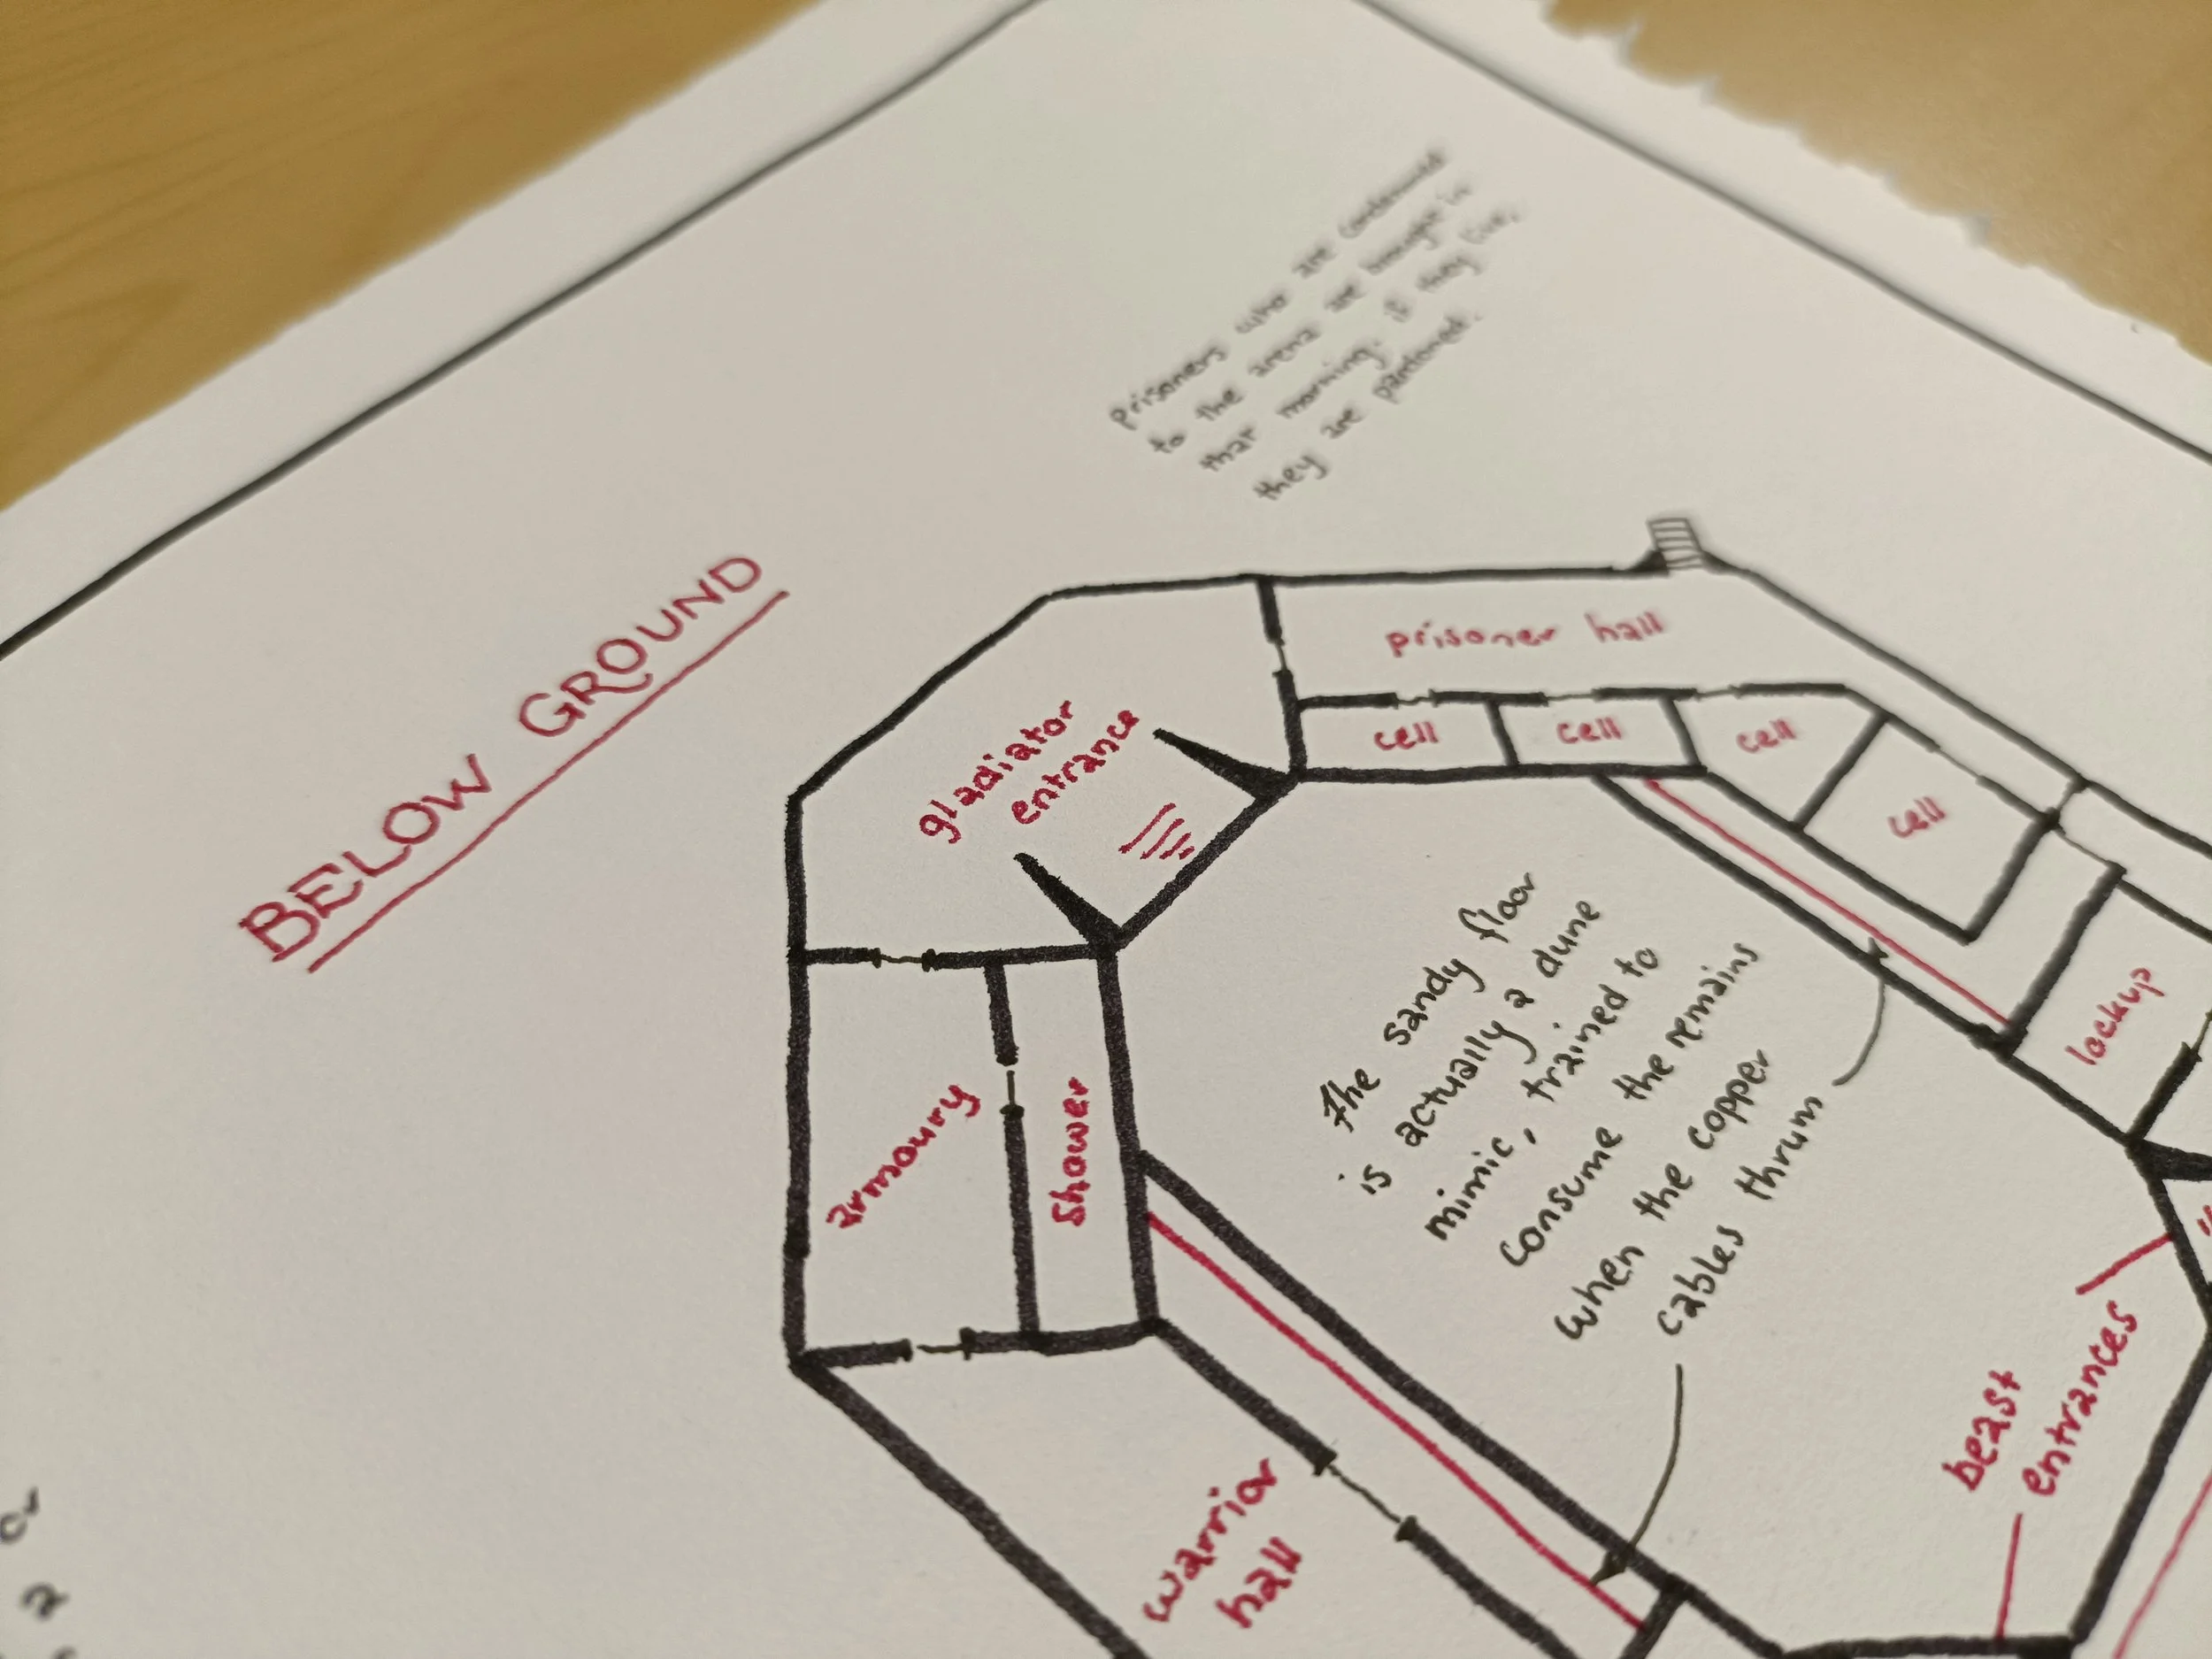 prisoners who are condemned
to the arena are brought in
that morning. if they live,
they are pardoned.
BELOW GROUND
prisoner hall
cell
cell
cell
cell
gladiator
entrance
lockup
the sandy floor
is actually a dune
mimic, trained to
consume the remains
when the copper
cables thrum
armoury
shower
beast
entrances
warrior
hall